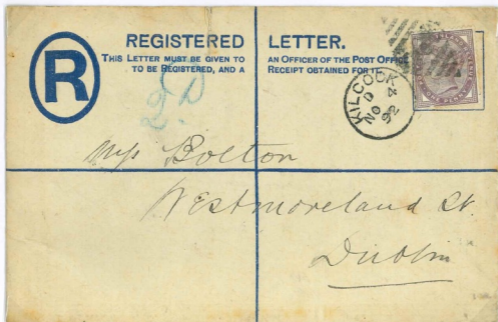 REGISTERED LETTER.
THIS LETTER MUST BE GIVEN TO AN OFFICER OF THE POST OFFICE
TO BE REGISTERED, AND A RECEIPT OBTAINED FOR IT.
R
KILCOCK
D
NO 4
92
Bolton
Westmoreland St.
Dublin